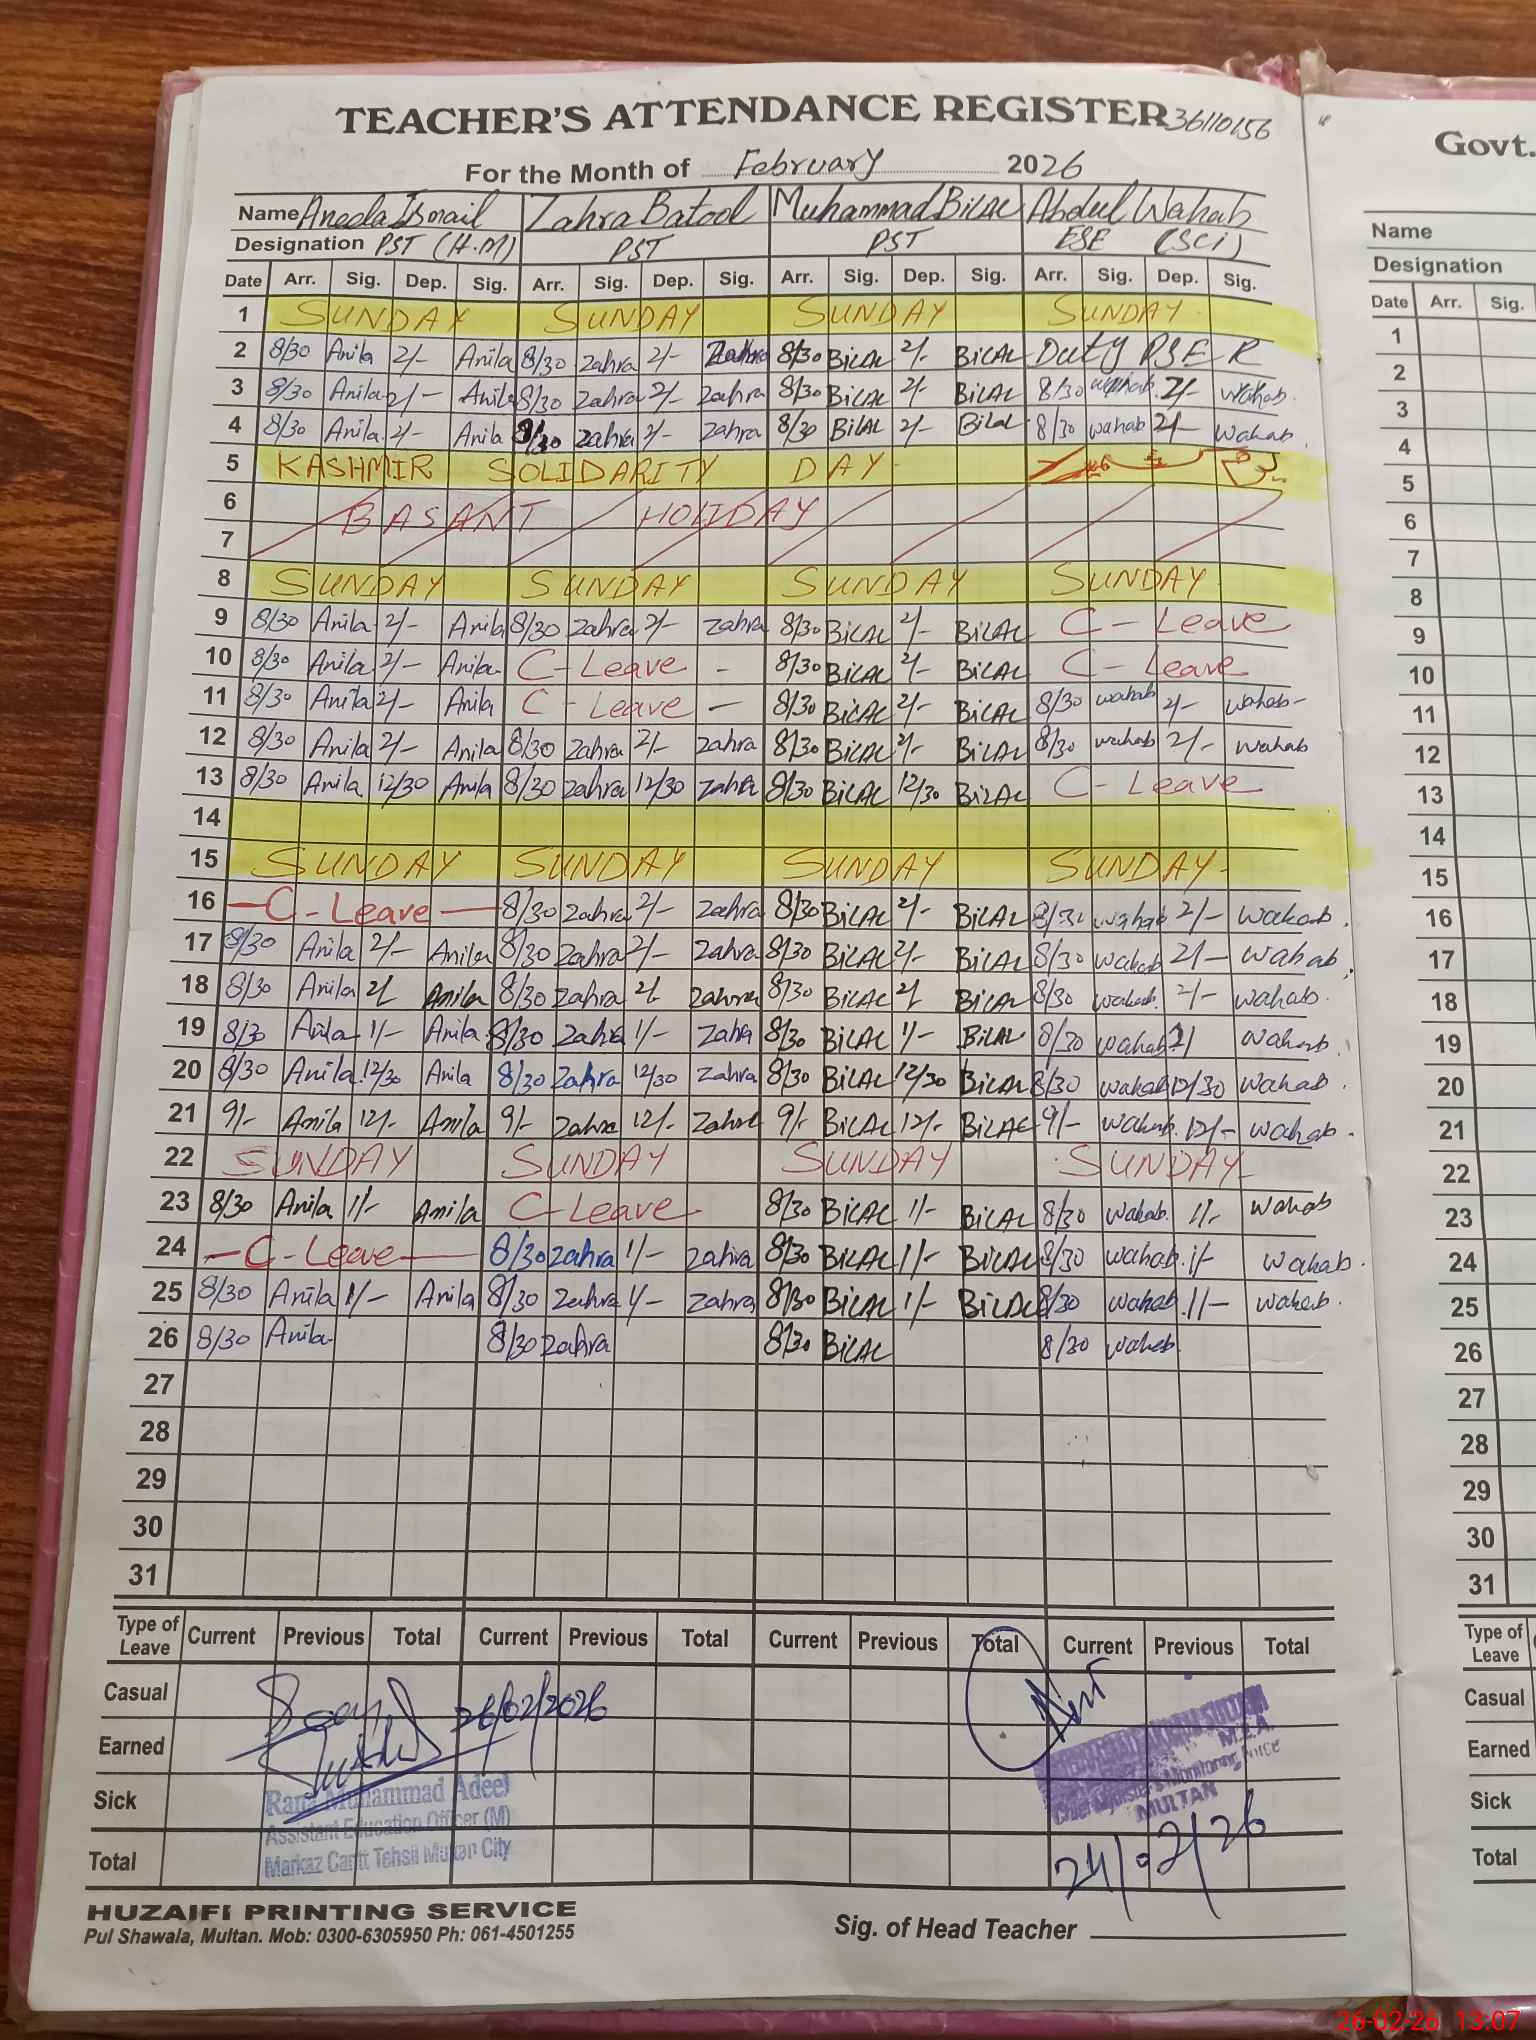 TEACHER'S ATTENDANCE REGISTER 36110156
For the Month of February 2026
Name Aneela Ismail Zahra Batool Muhammad BiLAL Abdul Wahab
Designation PST (H.M) PST PST ESE (SCi)
Date Arr. Sig. Dep. Sig. Arr. Sig. Dep. Sig. Arr. Sig. Dep. Sig. Arr. Sig. Dep. Sig.
1 SUNDAY SUNDAY SUNDAY SUNDAY
2 8/30 Anila 2/- Anila 8/30 Zahra 2/- Zahra 8/30 BiLAL 2/- BiLAL Duty PSER
3 8/30 Anila 2/- Anila 8/30 Zahra 2/- Zahra 8/30 BiLAL 2/- BiLAL 8/30 wahab 2/- wahab.
4 8/30 Anila. 2/- Anila 8/30 Zahra 2/- Zahra 8/30 BiLAL 2/- BiLAL 8/30 wahab 2/- wahab.
5 KASHMIR SOLIDARITY DAY
6 BASANT HOLIDAY
7
8 SUNDAY SUNDAY SUNDAY SUNDAY
9 8/30 Anila 2/- Anila 8/30 Zahra 2/- Zahra 8/30 BiLAL 2/- BiLAL C - Leave
10 8/30 Anila 2/- Anila. C - Leave - 8/30 BiLAL 2/- BiLAL C - Leave
11 8/30 Anila 2/- Anila C - Leave - 8/30 BiLAL 2/- BiLAL 8/30 wahab 2/- wahab-
12 8/30 Anila 2/- Anila 8/30 Zahra 2/- Zahra 8/30 BiLAL 2/- BiLAL 8/30 wahab 2/- wahab
13 8/30 Anila 12/30 Anila 8/30 Zahra 12/30 Zahra 8/30 BiLAL 12/30 BiLAL C - Leave
14
15 SUNDAY SUNDAY SUNDAY SUNDAY-
16 - C - Leave - 8/30 Zahra 2/- Zahra 8/30 BiLAL 2/- BiLAL 8/30 wahab 2/- wahab.
17 8/30 Anila 2/- Anila 8/30 Zahra 2/- Zahra 8/30 BiLAL 2/- BiLAL 8/30 wahab 2/- wahab.
18 8/30 Anila 2/ Anila 8/30 Zahra 2/- Zahra 8/30 BiLAL 2/ BiLAL 8/30 wahab. 2/- wahab.
19 8/30 Anila 1/- Anila. 8/30 Zahra 1/- Zahra 8/30 BiLAL 1/- BiLAL 8/30 wahab wahab.
20 8/30 Anila. 12/30 Anila 8/30 Zahra 12/30 Zahra 8/30 BiLAL 12/30 BiLAL 8/30 wahab 12/30 wahab.
21 9/- Anila 12/- Anila 9/- Zahra 12/- Zahra 9/- BiLAL 12/- BiLAL 9/- wahab. 12/- wahab.
22 SUNDAY SUNDAY SUNDAY SUNDAY-
23 8/30 Anila 1/- Anila C - Leave - 8/30 BiLAL 1/- BiLAL 8/30 wahab. 1/- wahab
24 - C - Leave - 8/30 Zahra 1/- Zahra 8/30 BiLAL 1/- BiLAL 8/30 wahab. 1/- wahab.
25 8/30 Anila 1/- Anila 8/30 Zahra 1/- Zahra 8/30 BiLAL 1/- BiLAL 8/30 wahab. 1/- wahab.
26 8/30 Anila. 8/30 Zahra 8/30 BiLAL 8/30 wahab.
27
28
29
30
31
Type of Leave Current Previous Total Current Previous Total Current Previous Total Current Previous Total
Casual
Earned
Sick
Total
26/02/2026
Rana Muhammad Adeel
Assistant Education Officer (M)
Markaz Cantt Tehsil Multan City
M.E.A.
Chief Minister's Monitoring Force
MULTAN
24/02/26
HUZAIFI PRINTING SERVICE
Pul Shawala, Multan. Mob: 0300-6305950 Ph: 061-4501255
Sig. of Head Teacher
Govt.
Name
Designation
Date Arr. Sig.
1
2
3
4
5
6
7
8
9
10
11
12
13
14
15
16
17
18
19
20
21
22
23
24
25
26
27
28
29
30
31
Type of Leave
Casual
Earned
Sick
Total
26-02-26 13:07